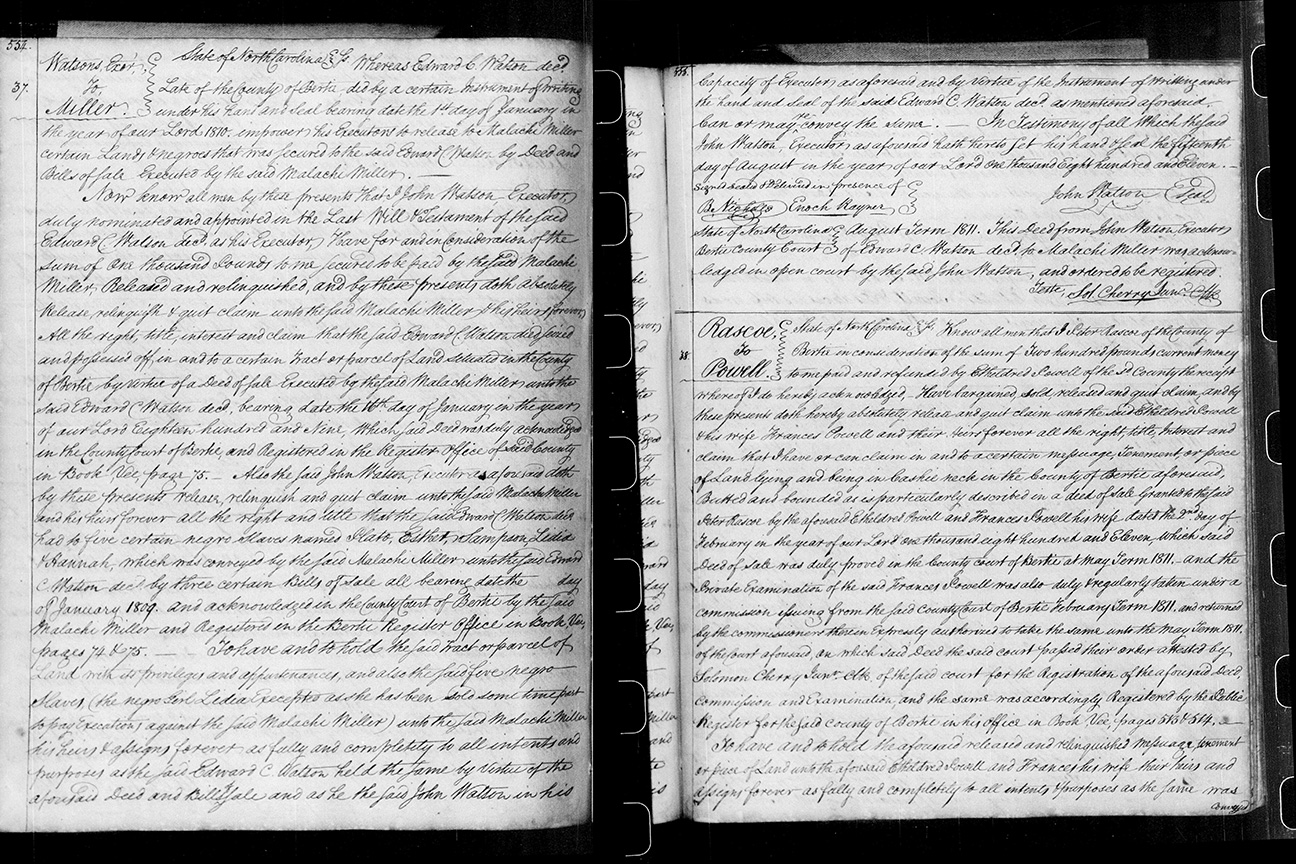 554.
Watsons, Exor. State of North Carolina Ss. Whereas Edward C Watson decd
37. To Late of the County of Bertie did by a certain Instrument of Writing
Miller. under his hand and Seal bearing date the 1st day of January in
the year of our Lord 1810. impower his Executors to release to Malachi Miller
certain Lands & negroes that was secured to the said Edward C Watson by Deed and
Bills of Sale Executed by the said Malachi Miller. —
Now know all men by these presents That I John Watson Executor,
duly nominated and appointed in the Last Will & Testament of the said
Edward C Watson decd. as his Executor, Have for and in Consideration of the
sum of One thousand Pounds to me secured to be paid by the said Malachi
Miller, Released and relinquished, and by these presents doth absolutely
Release, relinquish & quit claim unto the said Malachi Miller & his heirs forever,
All the right, title, interest and claim that the said Edward C Watson died seized
and possessed off, in and to a certain Tract or parcel of Land situated in the County
of Bertie by Vertue of a Deed of Sale Executed by the said Malachi Miller unto the
said Edward C Watson decd, bearing date the 16th day of January in the year
of our Lord Eighteen hundred and Nine, Which said Deed was duly acknowledged
in the County Court of Bertie, and Registered in the Register Office of said County
in Book Vee, page 75. — Also the said John Watson, Executor as aforesaid doth
by these presents release, relinquish and quit claim unto the said Malachi Miller
and his heirs forever all the right and title that the said Edward C Watson decd
had to five certain negro Slaves named Plato, Esther, Sampson, Lidia
& Hannah, which was conveyed by the said Malachi Miller unto the said Edward
C Watson decd by three certain Bills of Sale all bearing date the day
of January 1809. and acknowledged in the County Court of Bertie by the said
Malachi Miller and Registered in the Bertie Register Office in Book Vee,
pages 74 & 75. — To have and to hold the said Tract or parcel of
Land with its privileges and appurtenances, and also the said five negro
Slaves, (the negro Girl Lidia Excepted as she has been sold some time past
to pay Executions against the said Malachi Miller) unto the said Malachi Miller
his heirs & assigns forever as fully and completely to all intents and
purposes as the said Edward C. Watson held the same by Virtue of the
aforesaid Deed and Bills of Sale and as he the said John Watson in his
555.
Capacity of Executor, as aforesaid and by Vertue of the Instrument of Writting under
the hand and Seal of the said Edward C. Watson decd. as mentioned aforesaid.
Can or may convey the same. — In Testimony of all Which the said
John Watson, Executor as aforesaid hath hereto set his hand & Seal the fifteenth
day of August in the year of our Lord One thousand Eight hundred and Eleven. —
Signed Sealed & Delivered in presence of
B. Nichols Enoch Rayner John Watson Seal
State of North Carolina August Term 1811. This Deed from John Watson Executor
Bertie County Court of Edward C. Watson decd. to Malachi Miller was acknow-
ledged in open court by the said John Watson, and ordered to be registered.
Teste, Sol. Cherry Junr. Clk
Rascoe State of North Carolina Ss. Know all men that I Peter Rascoe of the County of
38. To Bertie in consideration of the sum of Two hundred pounds current money
Powell. to me paid and refunded by Etheldred Powell of the sd County the receipt
whereof I do hereby acknowledged, Have bargained, sold, released and quit claim, and by
these presents doth hereby absolutely release and quit claim unto the said Etheldred Powell
& his wife Frances Powell and their Heirs forever all the right, title, Interest and
claim that I have or can claim in and to a certain messuage, Tenement, or piece
of Land lying and being in Cashie neck in the County of Bertie aforesaid,
Butted and bounded as is particularly described in a deed of Sale Granted to the said
Peter Rascoe by the aforesaid Etheldred Powell and Frances Powell his wife dated the 2nd day of
February in the year of our Lord one thousand eight hundred and Eleven, which said
Deed of sale was duly proved in the County court of Bertie at May Term 1811. and the
Private Examination of the said Frances Powell was also duly & regularly taken under a
commission issuing from the said County Court of Bertie February Term 1811. and returned
by the commissioners therein Expressly authorized to take the same unto the May Term 1811.
of the Court aforesaid, on which said Deed the said court passed their order attested by
Solomon Cherry Junr. Clk. of the said court for the Registration of the aforesaid Deed,
commission and Examination, and the same was accordingly Registered by the Public
Register for the said County of Bertie in his office in Book Vee, pages 513 & 514. —
To have and to hold the aforesaid released and relinquished messuage, Tenement
or piece of Land unto the aforesaid Etheldred Powell and Frances his wife their heirs and
assigns forever as fully and completely to all intents & purposes as the same was
convey'd